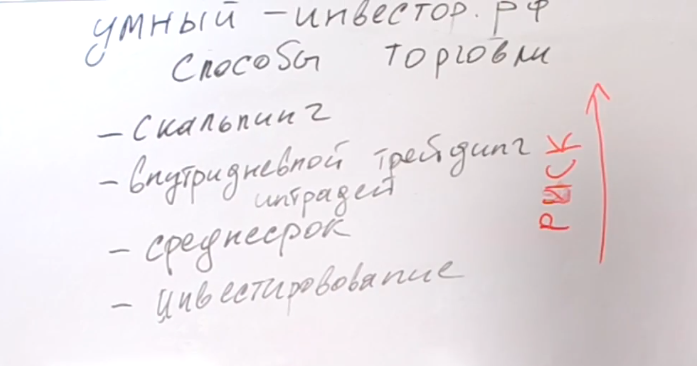 умный-инвестор.рф
Способы торговли
- Скальпинг
- Внутридневной трейдинг
интрадей
- среднесрок
- Инвестировование
РИСК